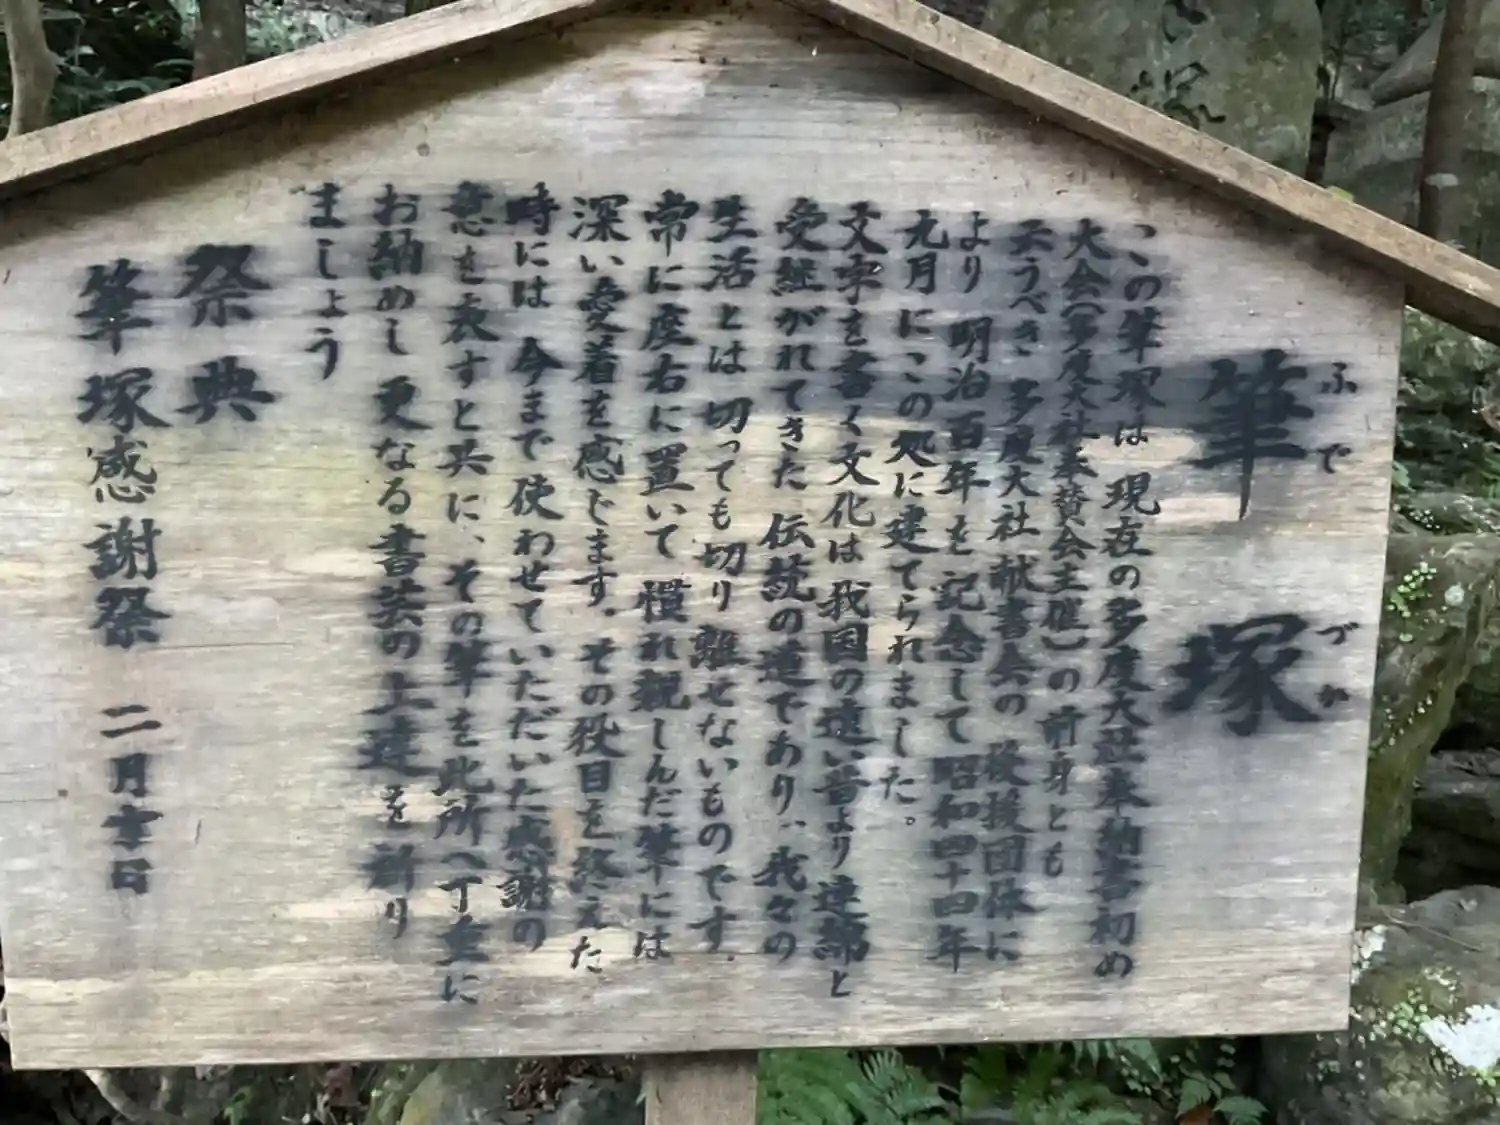 筆塚
ふでづか
この筆塚は 現在の多度大社奉納書初め
大会(多度大社奉賛会主催)の前身とも
云うべき 多度大社 献書会の 後援団体に
より 明治百年を記念して 昭和四十四年
九月にこの処に建てられました。
文字を書く文化は 我国の遠い昔より連綿と
受継がれてきた 伝統の道であり、我々の
生活とは 切っても切り離せないものです。
常に座右に置いて 慣れ親しんだ筆には
深い愛着を感じます。その役目を終えた
時には 今まで使わせていただいた感謝の
意を表すと共に、その筆を此所へ丁重に
お納めし 更なる書芸の上達を祈り
ましょう
祭典
筆塚感謝祭 二月吉日